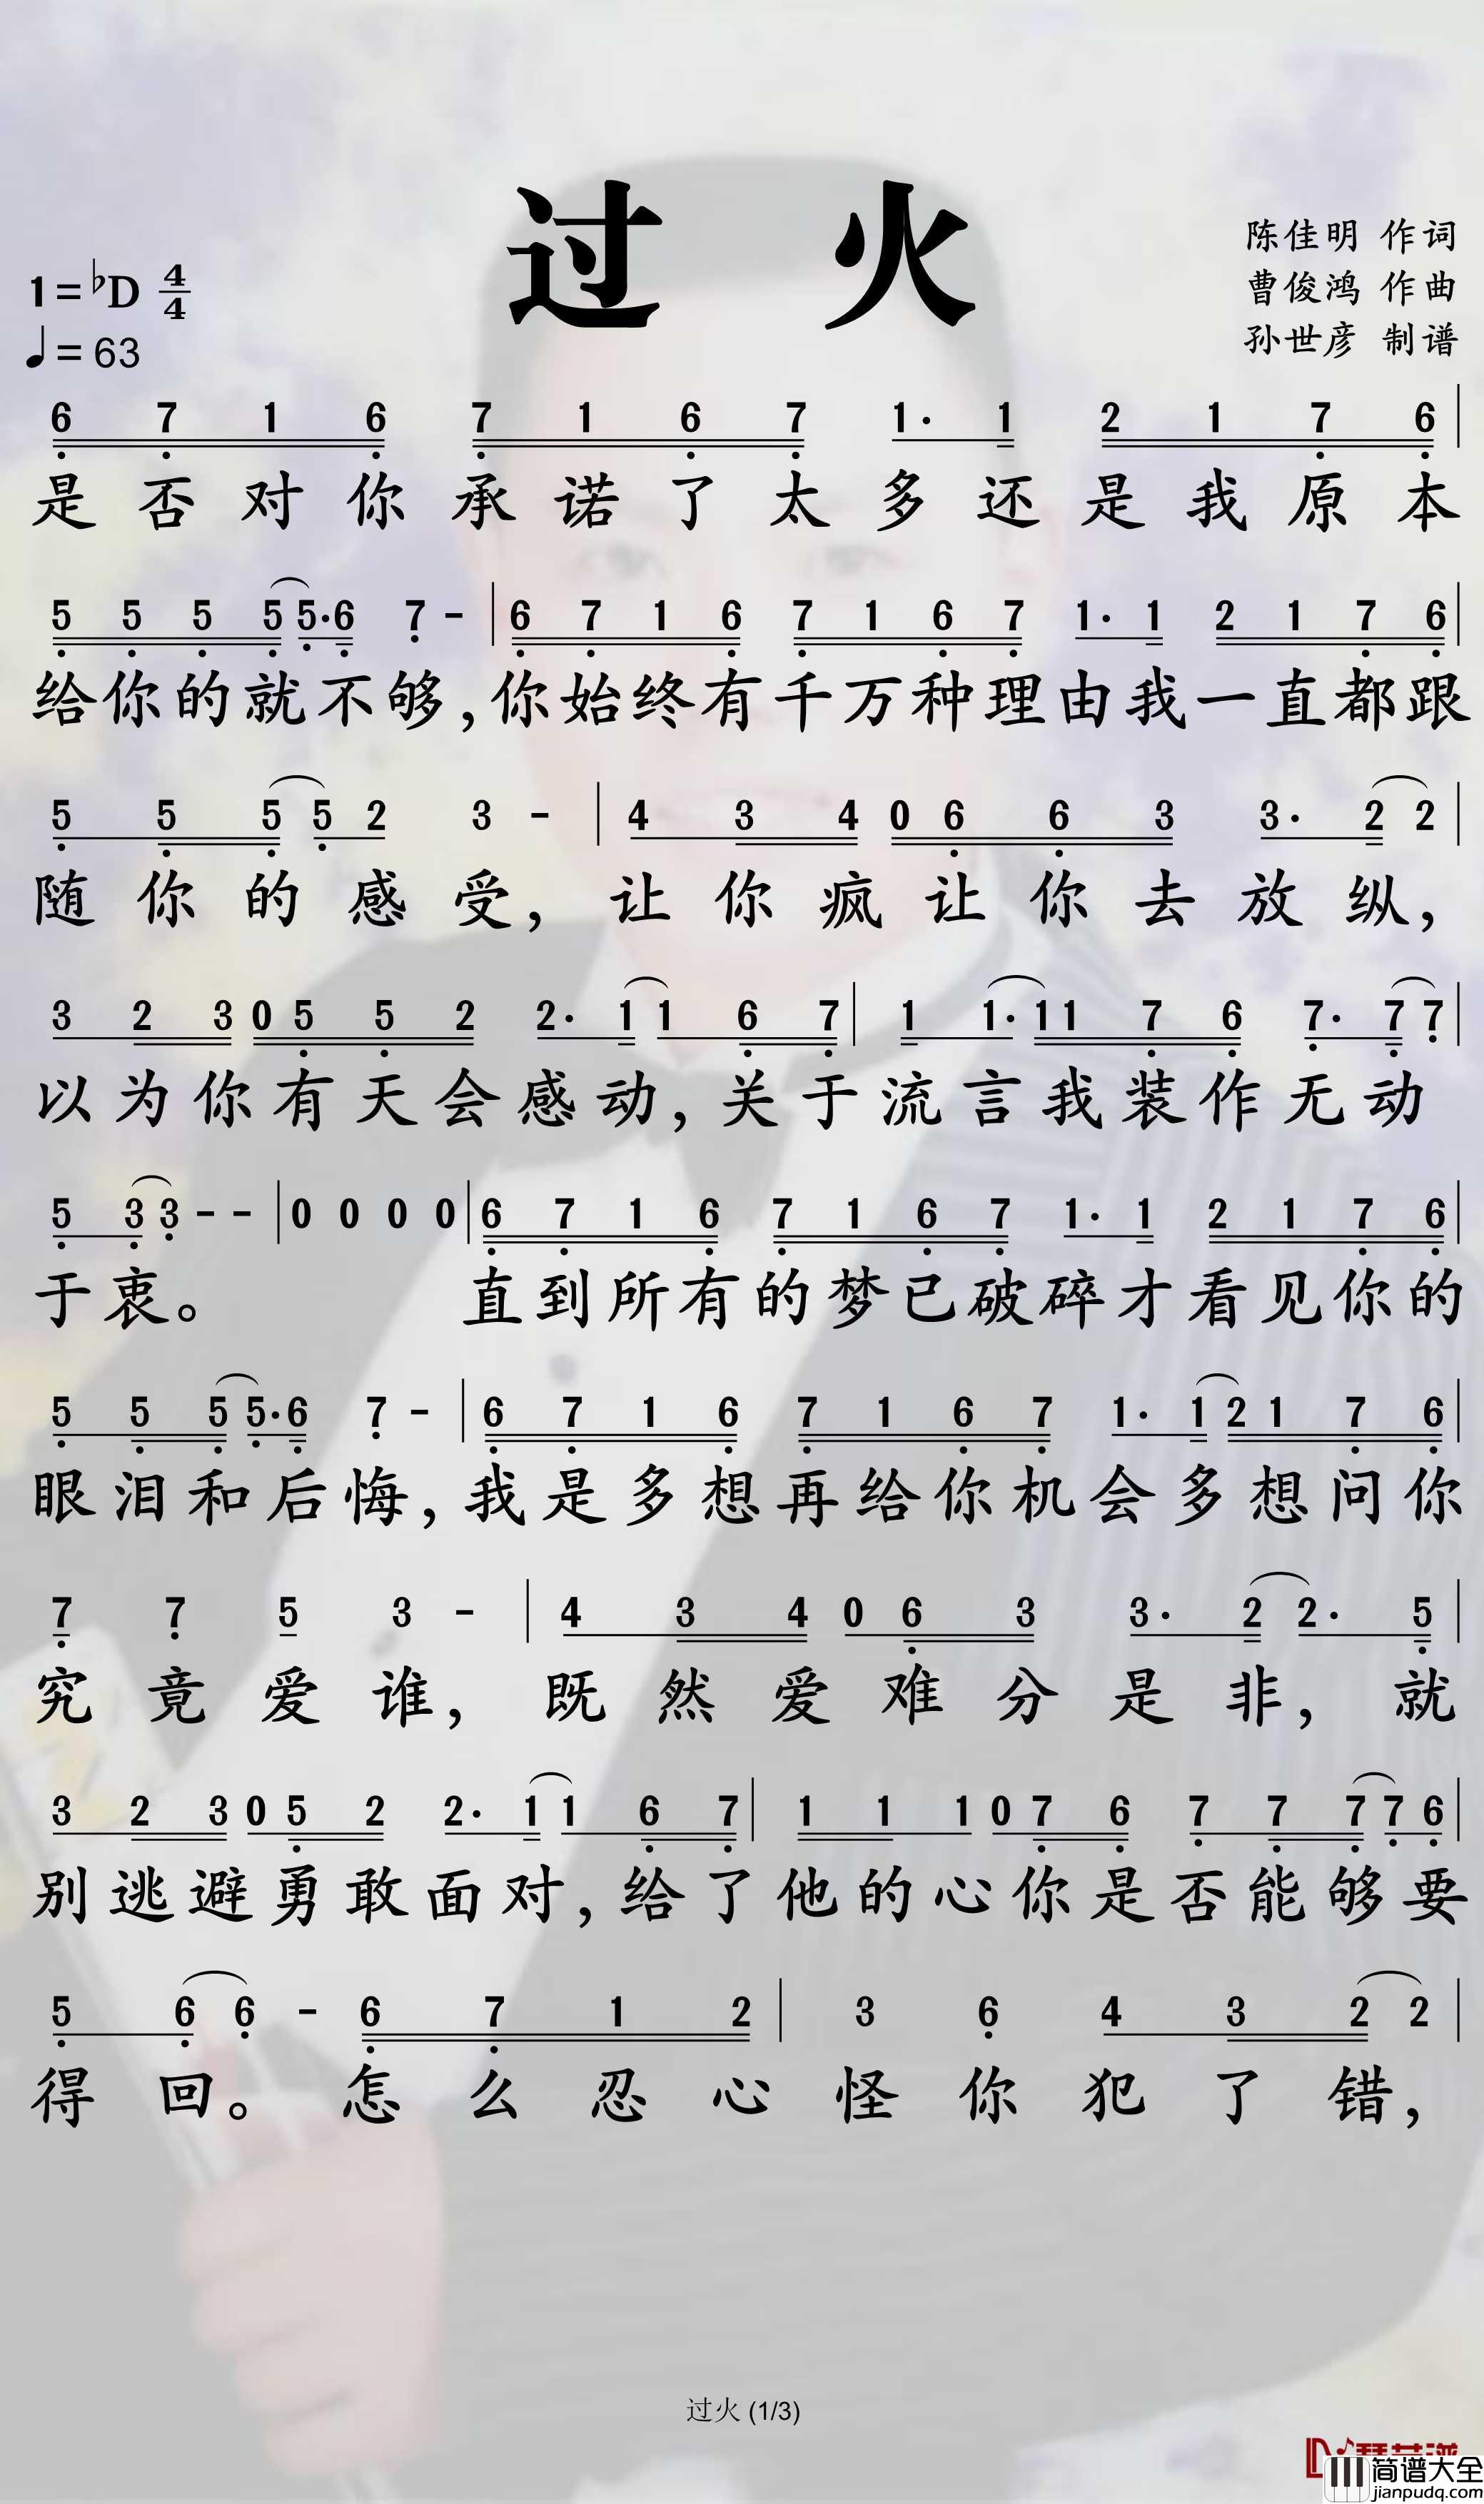 过 火
陈佳明 作词
曹俊鸿 作曲
孙世彦 制谱
1=♭D 4/4
♩=63
6 7 1 6 7 1 6 7 1· 1 2 1 7 6 |
是否对你承诺了太多还是我原本
5 5 5 5 5·6 7 - | 6 7 1 6 7 1 6 7 1· 1 2 1 7 6 |
给你的就不够,你始终有千万种理由我一直都跟
5 5 5 5 2 3 - | 4 3 4 0 6 6 3 3· 2 2 |
随你的感受,让你疯让你去放纵,
3 2 3 0 5 5 2 2· 1 1 6 7 | 1 1· 1 1 7 6 7· 7 7 |
以为你有天会感动,关于流言我装作无动
5 3 3 - - | 0 0 0 0 | 6 7 1 6 7 1 6 7 1· 1 2 1 7 6 |
于衷。 直到所有的梦已破碎才看见你的
5 5 5 5·6 7 - | 6 7 1 6 7 1 6 7 1· 1 2 1 7 6 |
眼泪和后悔,我是多想再给你机会多想问你
7 7 5 3 - | 4 3 4 0 6 3 3· 2 2· 5 |
究竟爱谁,既然爱难分是非,就
3 2 3 0 5 2 2· 1 1 6 7 | 1 1 1 0 7 6 7 7 7 7 6 |
别逃避勇敢面对,给了他的心你是否能够要
5 6 6 - 6 7 1 2 | 3 6 4 3 2 2 |
得回。怎么忍心怪你犯了错,
过火 (1/3)
简谱大全
jianpudq.com